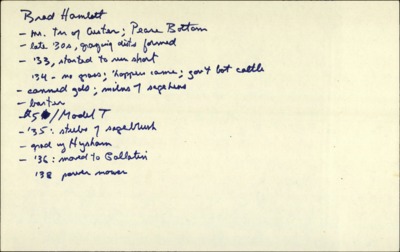 Brad Hamlett
- mr. Tn of Custer; Pease Bottom
- late '30s, grazing dists formed
- '33, started to run short
'34 - no grass; 'hoppers came; gov't bot cattle
- canned gds; milns 7 sagehens
- barter
$50/Model T
- '35: steers 7 sagebrush
- grad uf Hysham
- '36: moved to Gallatin
'38 power mower